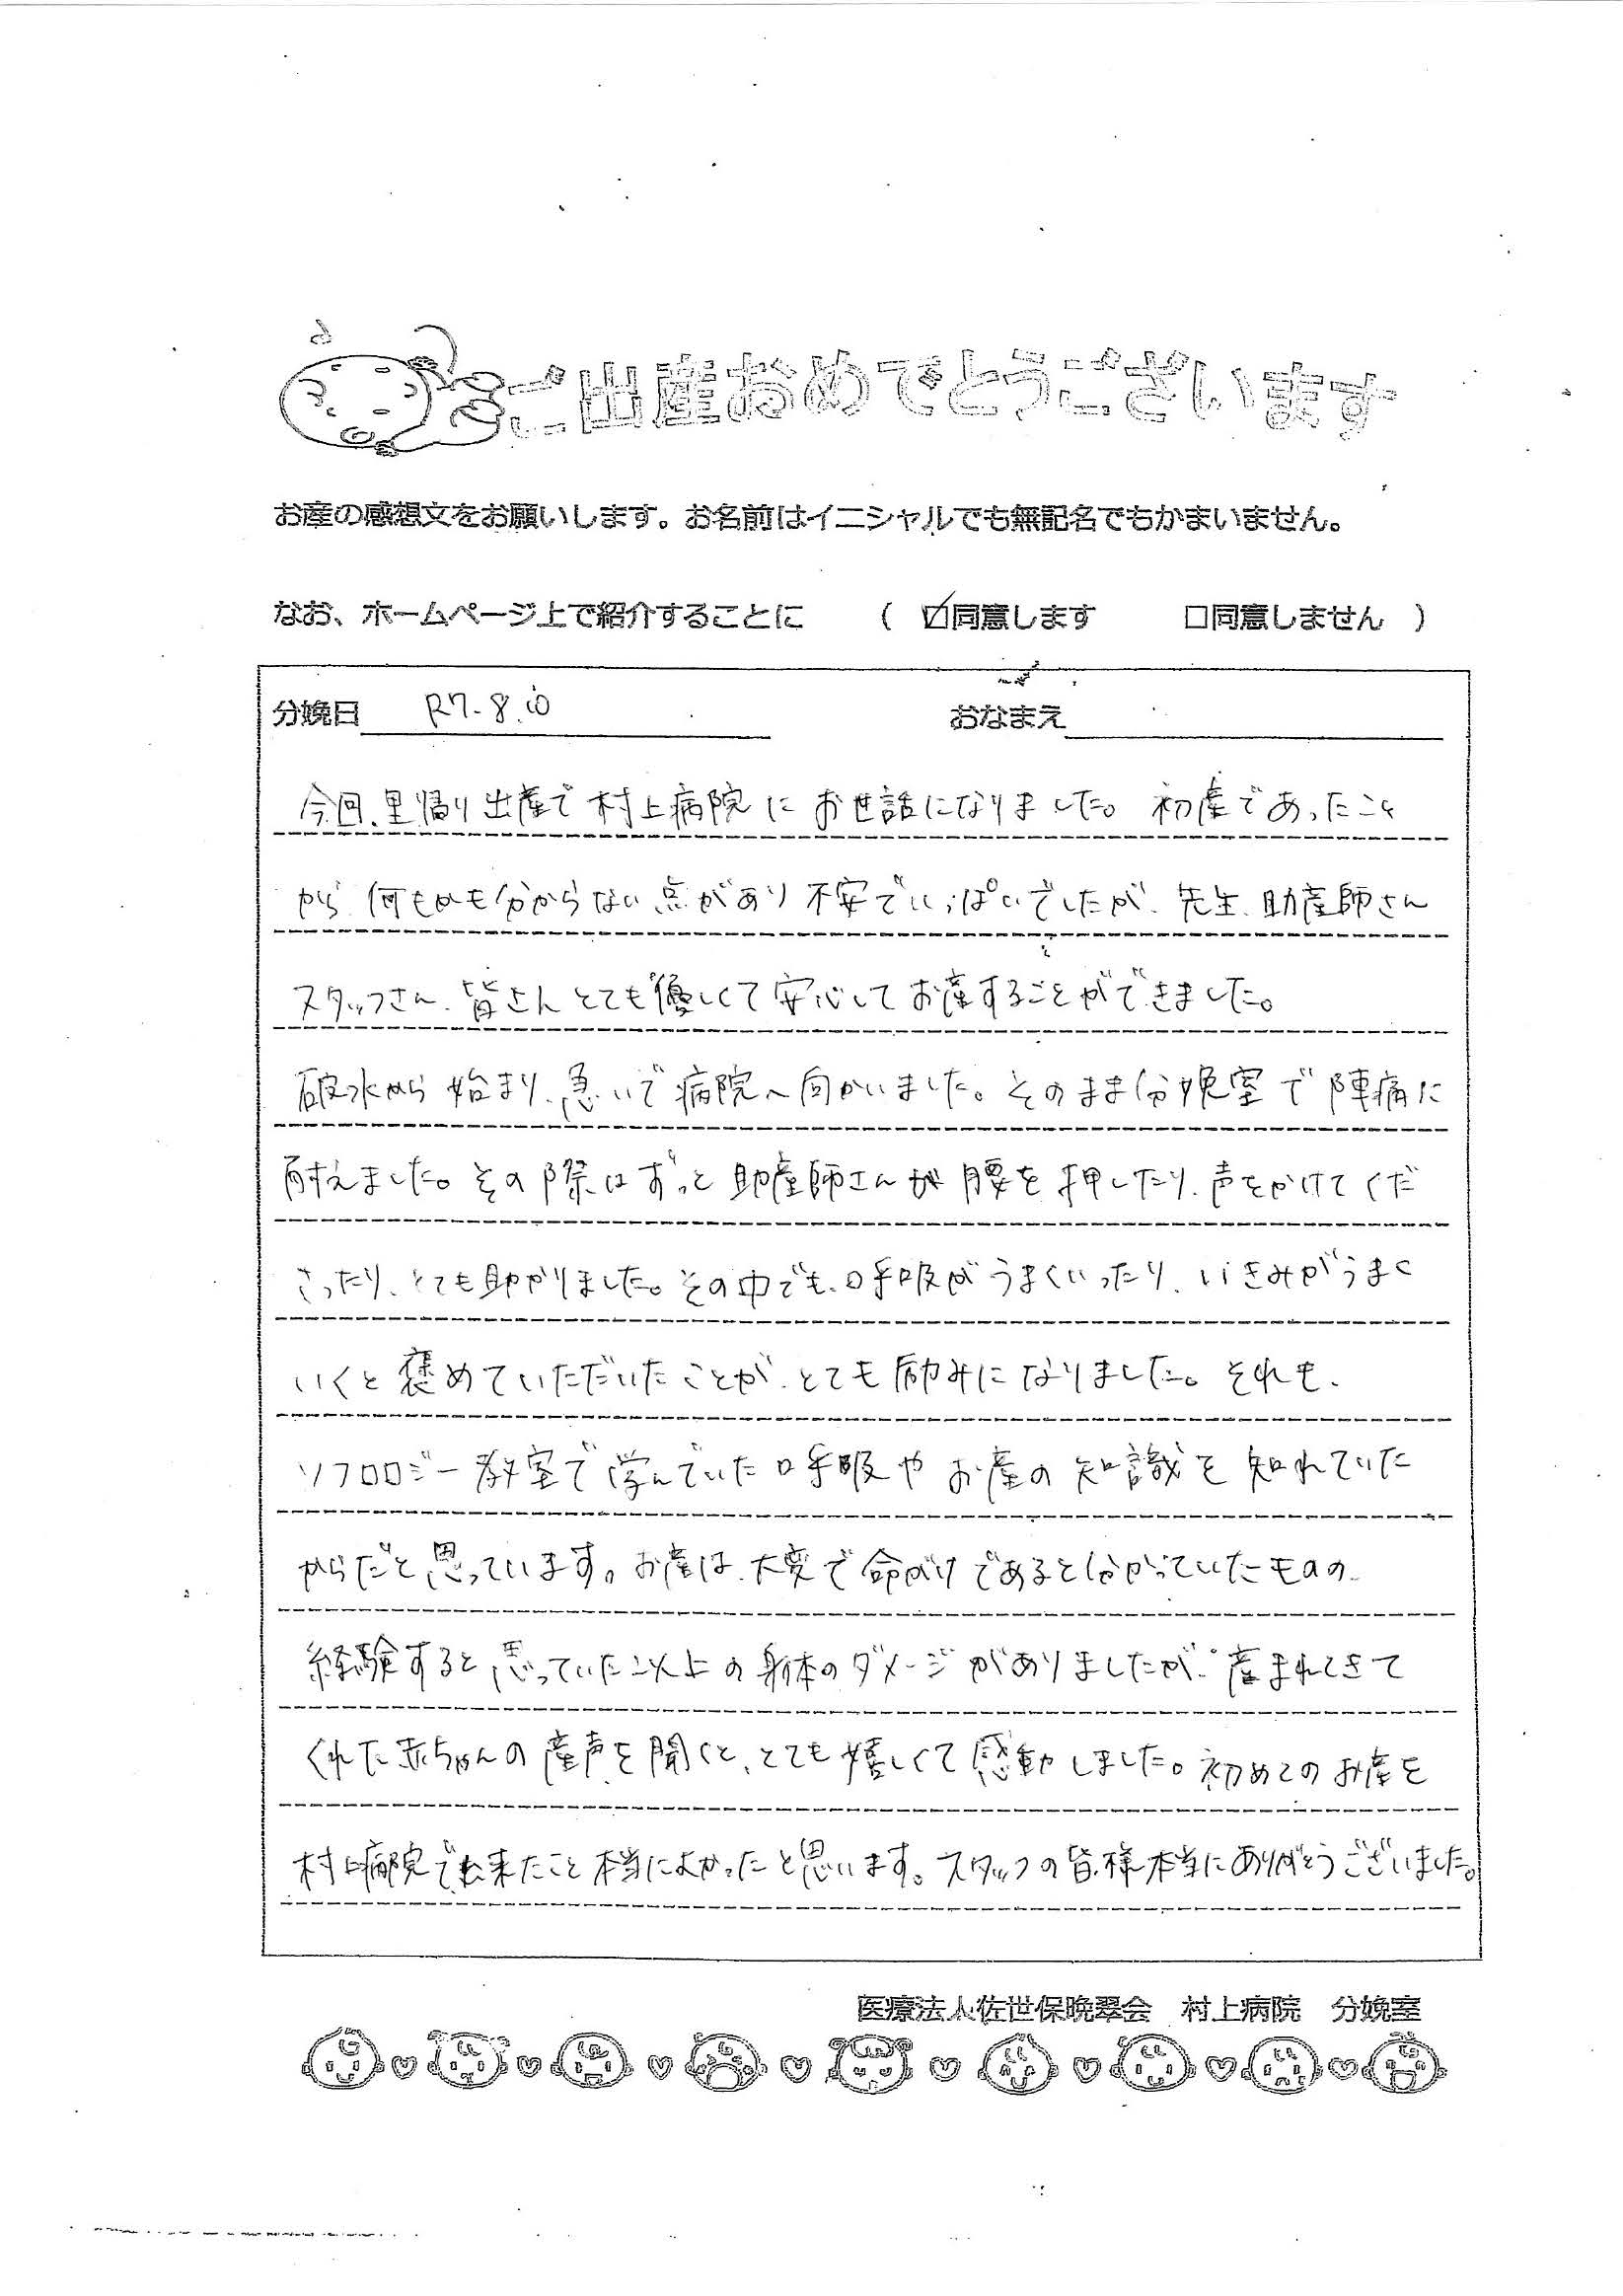 ご出産おめでとうございます
お産の感想文をお願いします。お名前はイニシャルでも無記名でもかまいません。
なお、ホームページ上で紹介することに （ ☑同意します □同意しません ）
分娩日 R7.8.10 おなまえ
今回、里帰り出産で村上病院にお世話になりました。初産であったこと
から何もかも分からない点があり不安でいっぱいでしたが、先生、助産師さん
スタッフさん、皆さんとても優しくて安心してお産することができました。
破水から始まり、急いで病院へ向かいました。そのまま分娩室で陣痛に
耐えました。その際はずっと助産師さんが腰を押したり、声をかけてくだ
さったり、とても助かりました。その中でも、呼吸がうまくいったり、いきみがうまく
いくと褒めていただいたことが、とても励みになりました。それも、
ソフロロジー教室で学んでいた呼吸やお産の知識を知れていた
からだと思っています。お産は、大変で命がけであると分かっていたものの、
経験すると思っていた以上の身体のダメージがありましたが、産まれてきて
くれた赤ちゃんの産声を聞くと、とても嬉しくて感動しました。初めてのお産を
村上病院で出来たこと本当によかったと思います。スタッフの皆様本当にありがとうございました。
医療法人佐世保晩翠会 村上病院 分娩室